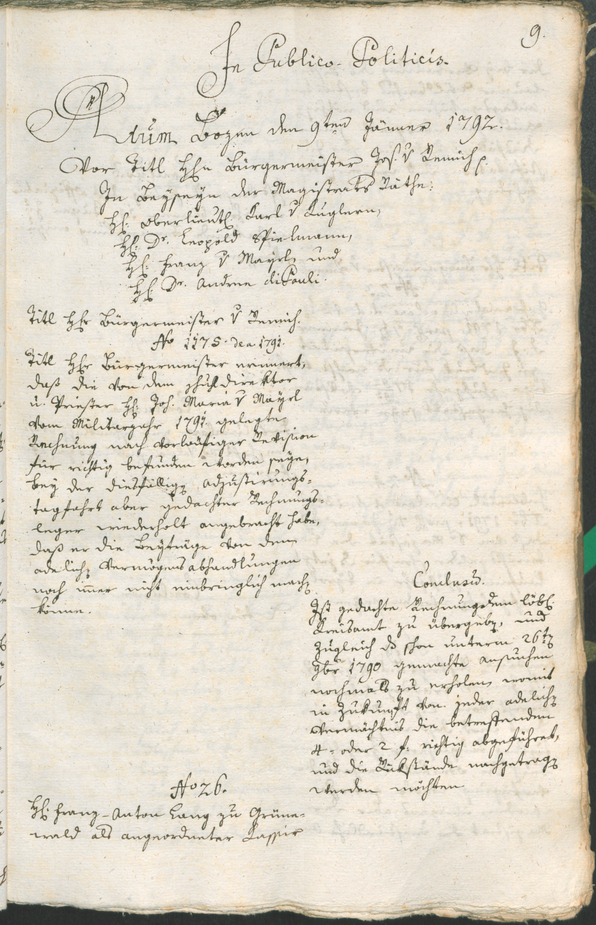 9.
In Publico-Politicis.
Actum Bozen den 9ten Jänner 1792.
Vor Titl Hhn Bürgermeister Jos. v Remich
In Beyseyn der Magistrats Räthe:
HH. Oberlieut. Karl v Kuglern,
HH. Dr. Leopold Spielmann,
HH. Franz v Mayrl, und
HH. Dr. Andree di Pauli.
Titl Hhr Bürgermeister v Remich.
No 1175. den 1791.
Titl Hhr Bürgermeister erinnert,
daß die von dem direktor
u. Priester Hh. Joh. Maria v Mayrl
vom Militarjahr 1791 gelegte
Rechnung nach vorläufiger Revision
für richtig befunden worden seye,
bey der diesfällig adjustirungs-
tagfahrt aber gedachter Rechnungs-
leger wiederholt angebracht habe,
daß er die Beyträge von denen
adelich Vermögensabhandlungen
noch immer nicht einbringlich mach
könne.
Conclusum.
Ist gedachte Rechnung dem löbl
Kreisamt zu übergeben, und
zugleich schon unterm 26t
9ber 1790 gemachte ansuchen
nochmals zu erholen, womit
in Zukunft von jeder adelich
Vermächtnis die betreffenden
4. oder 2 f. richtig abgeführet,
und die Rükstände nachgetrag
werden möchten
No 26.
HH. Franz-Anton Lang zu Grüne-
wald als angeordneter Kassier